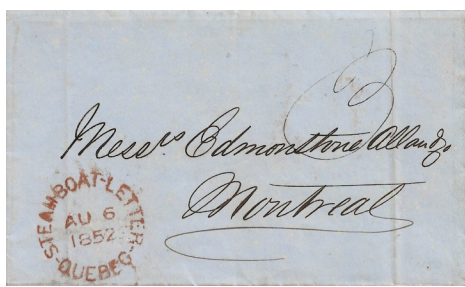 3
Messrs Edmonstone Allan & Co
Montreal
STEAM-BOAT-LETTER-
AU 6
1852
-QUEBEC-